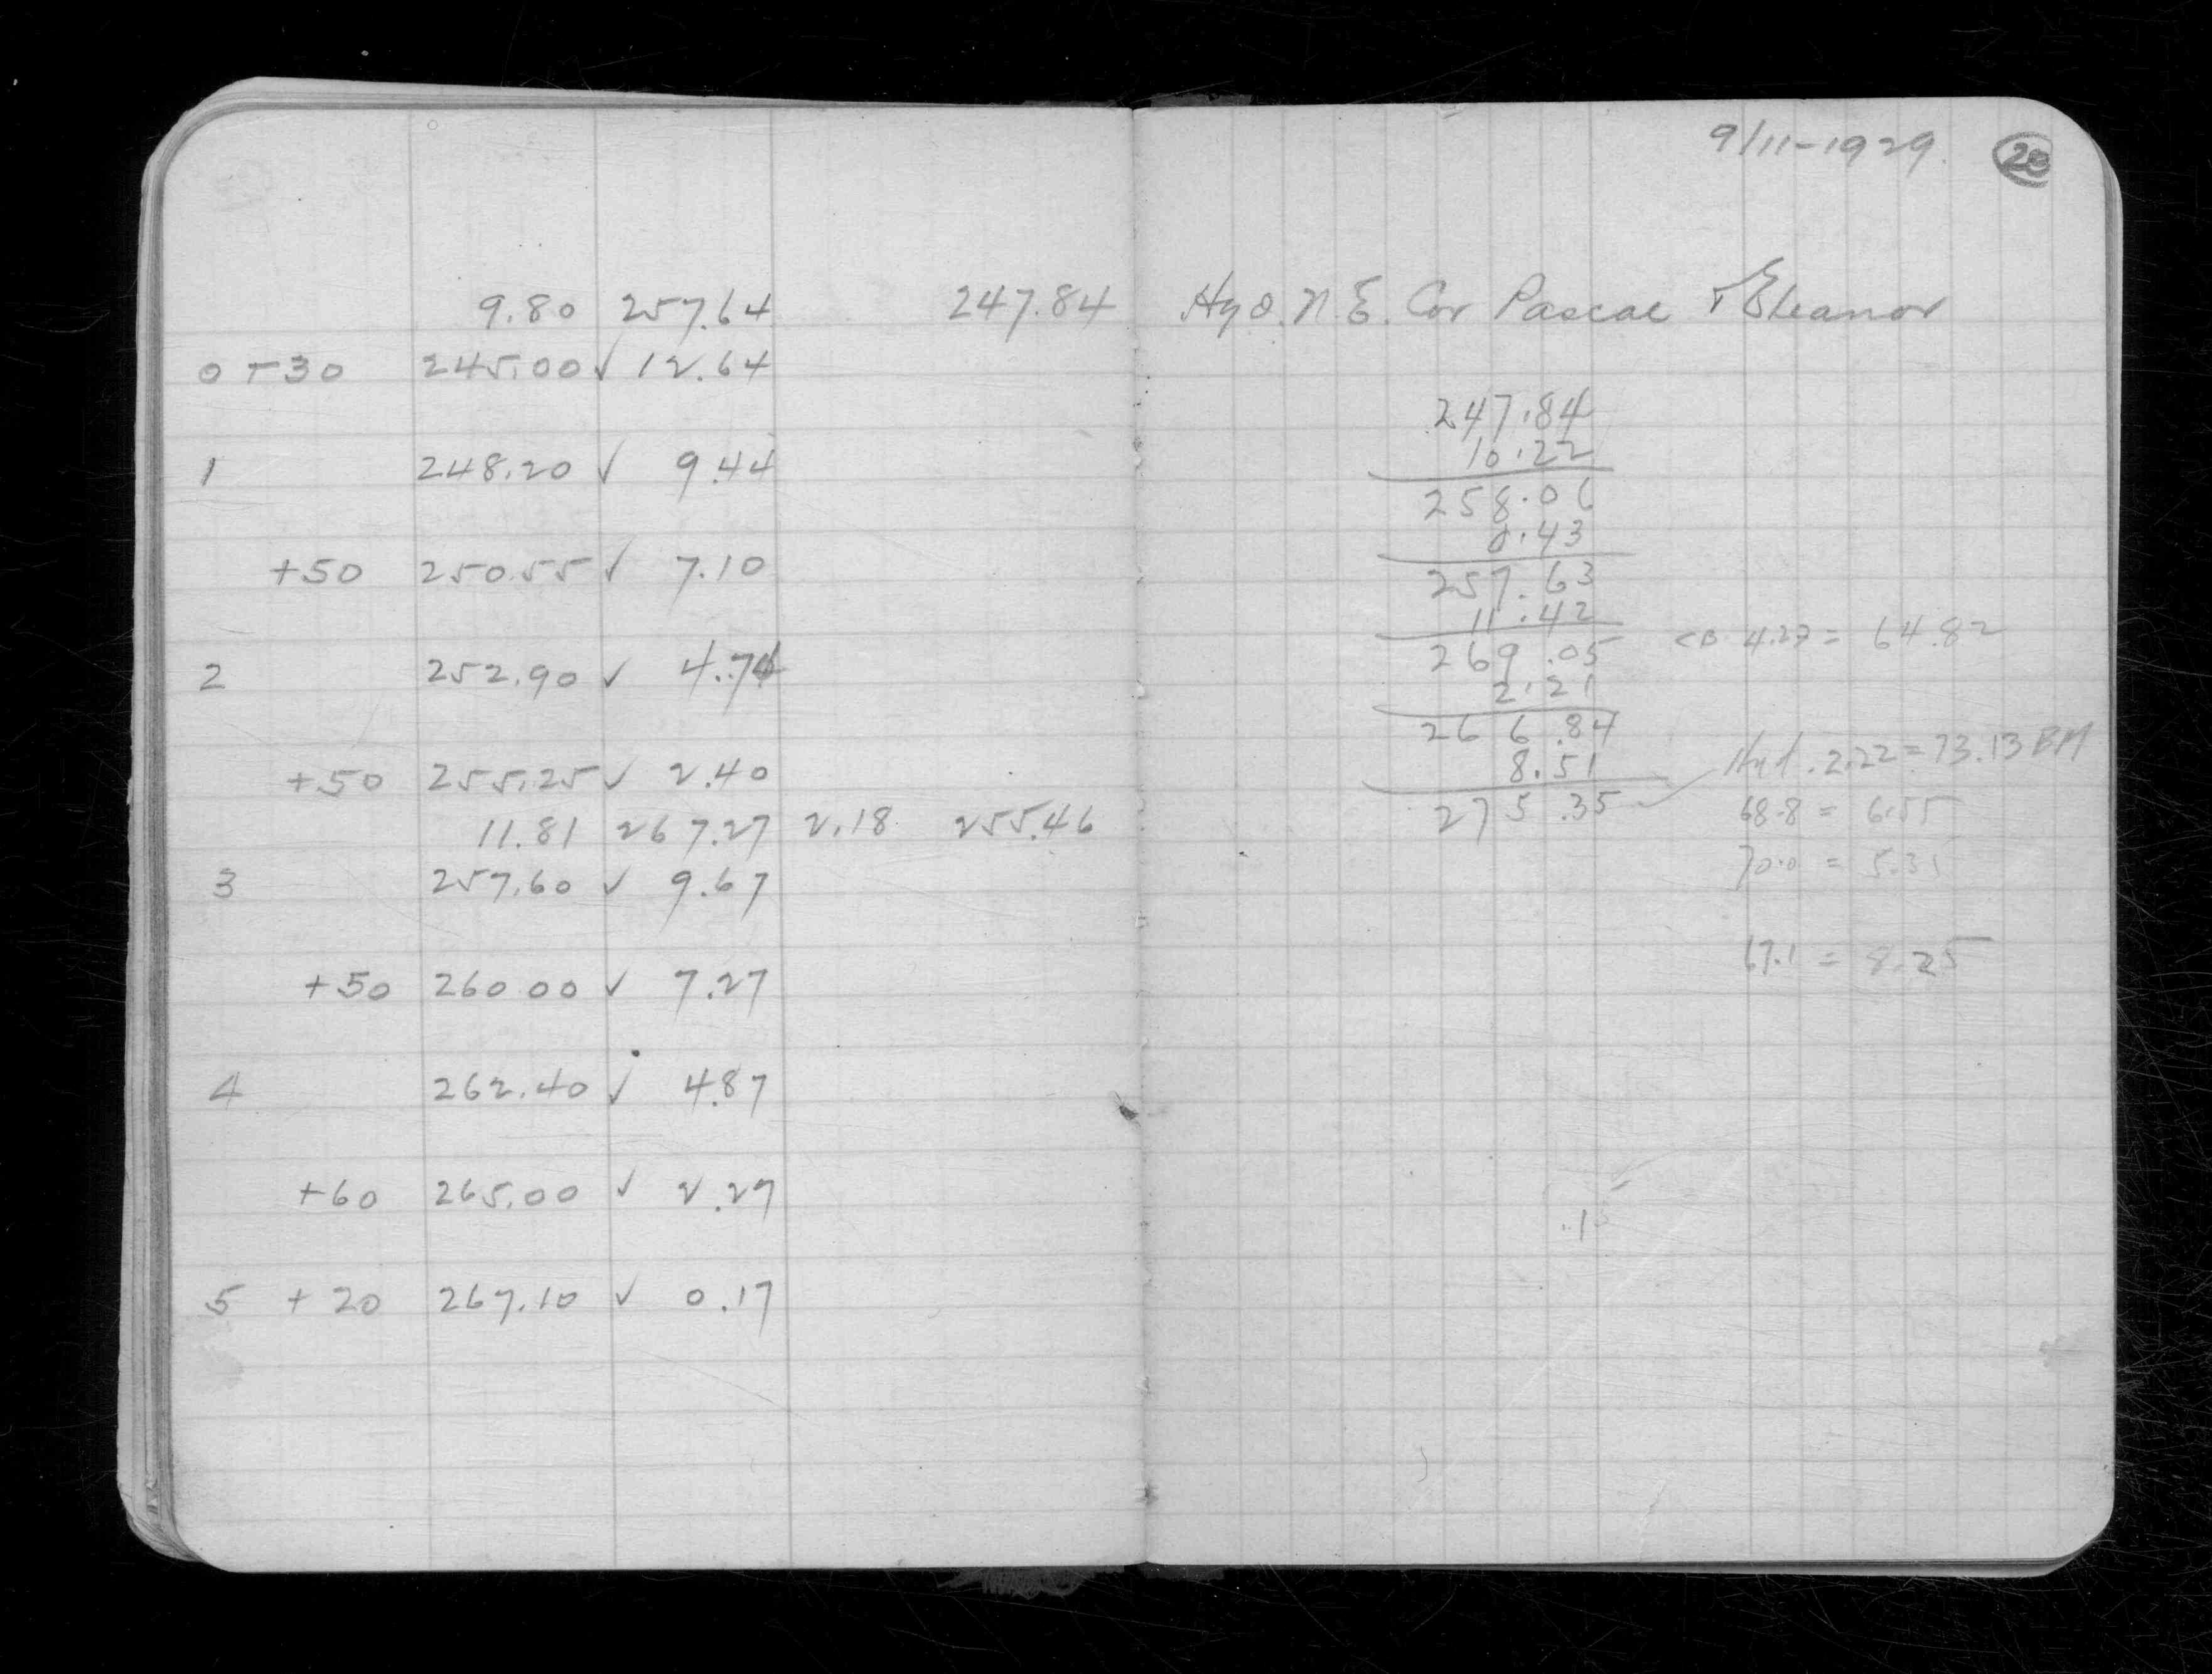 9.80 257.64 247.84
0+30 245.00 ✓ 12.64
1 248.20 ✓ 9.44
+50 250.55 ✓ 7.10
2 252.90 ✓ 4.74
+50 255.25 ✓ 2.40
11.81 267.27 2.18 255.46
3 257.60 ✓ 9.67
+50 260 00 ✓ 7.27
4 262.40 ✓ 4.87
+60 265.00 ✓ 2.27
5 +20 267.10 ✓ 0.17
9/11-1929
Hyd. N.E. Cor Pascal & Eleanor
247.84
10.22
258.06
0.43
257.63
11.42
269.05 CB 4.23 = 64.82
2.21
266.84
8.51 Hyd. 2.22 = 73.13 BM
275.35 ✓ 68.8 = 6.55
70.0 = 5.35
67.1 = 8.25